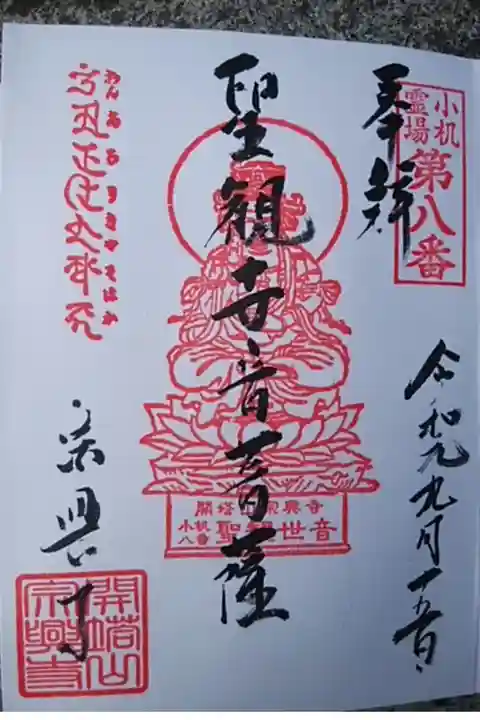 小机
霊場
第八番
奉拝
令和元九月十五日
聖観世音菩薩
開塔山宗興寺
小机
八番
聖観世音
おんあろりきやそはか
宗興寺
開塔山
宗興寺